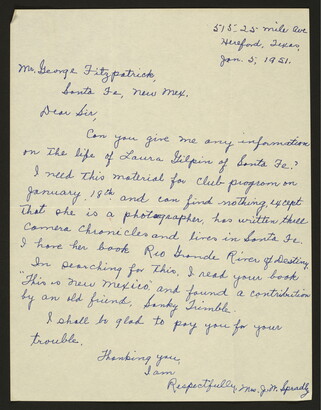 515-25 mile Ave
Hereford, Texas,
Jan. 5, 1951.
Mr. George Fitzpatrick,
Santa Fe, New Mex.
Dear Sir,
Can you give me any information
on the life of Laura Gilpin of Santa Fe?
I need this material for club program on
January 18th and can find nothing, except
that she is a photographer, has written three
Camera Chronicles and lives in Santa Fe.
I have her book Rio Grande River of Destiny.
In searching for this, I read your book
"This is New Mexico" and found a contribution
by an old friend, Sonky Trimble.
I shall be glad to pay you for your
trouble.
Thanking you,
I am
Respectfully, Mrs. J.W. Spradly